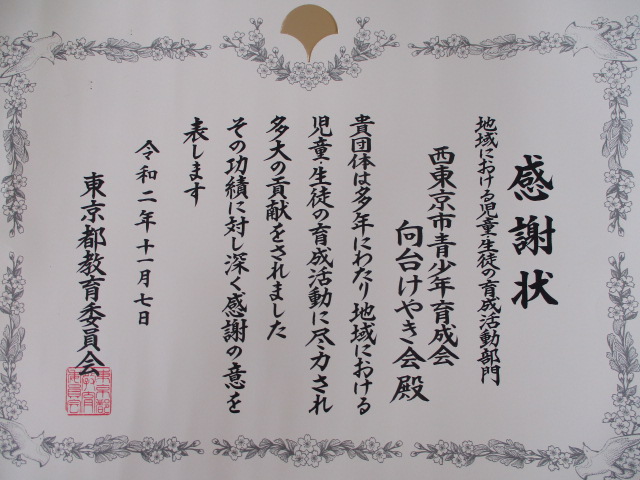 感謝状
地域における児童・生徒の育成活動部門
西東京市青少年育成会
向台けやき会殿
貴団体は多年にわたり地域における
児童・生徒の育成活動に尽力され
多大の貢献をされました
その功績に対し深く感謝の意を
表します
令和二年十一月七日
東京都教育委員会